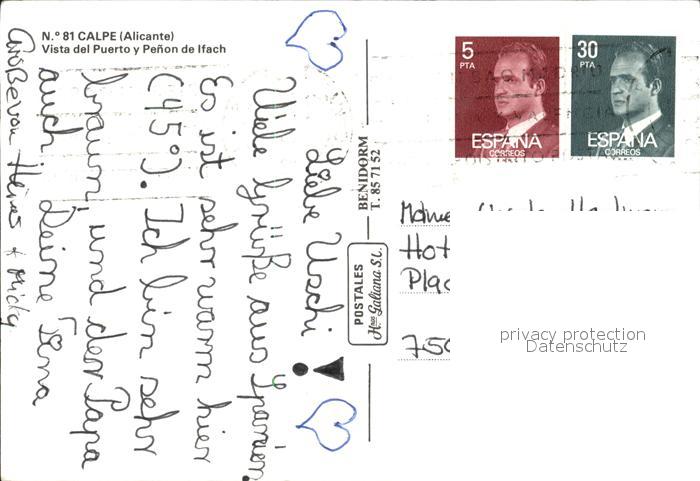 N.º 81 CALPE (Alicante)
Vista del Puerto y Peñon de Ifach
Liebe Uschi!
Viele Grüße aus Spanien.
Es ist sehr warm hier
(45°). Ich bin sehr
braun, und der Papa
auch. Deine
Grüße von
POSTALES
Hnos Galiana S.L.
BENIDORM
T. 85 71 52
5
PTA
ESPAÑA
CORREOS
30
PTA
ESPAÑA
CORREOS
Hot
Plac
750
privacy protection
Datenschutz